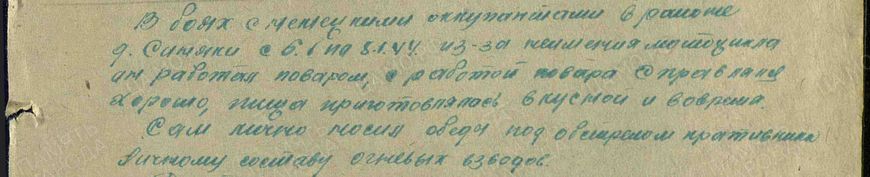 В боях с немецкими оккупантами в районе
д. Синяки с 6.1 по 8.1.44 из-за неимения мотоцикла
он работал поваром, с работой повара справлялся
хорошо, пища приготовлялась вкусной и вовремя.
Сам лично носил обед под обстрелом противника
личному составу огневых взводов.